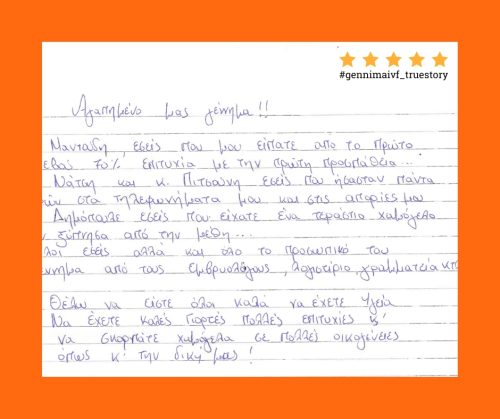 #gennimaivf_truestory
Αγαπημένο μας γέννημα!!
Μανταδη, εσείς που μου είπατε απο το πρώτο
70% επιτυχία με την πρώτη προσπάθεια...
Νάτση και κ. Πιτσούνη εσείς που ήσασταν πάντα
στα τηλεφωνήματα μου και στις απορίες μου
Δημόπουλε εσείς που είχατε ένα τεράστιο χαμόγελο
ξύπνησα από την μέθη...
λοι εσείς αλλά και όλο το προσωπικό του
νημα από τους εμβρυολόγους, λογιστήριο, γραμματεία κτλ
Θέλω να είστε όλοι καλά να έχετε Υγεία
Να έχετε καλές Γιορτές πολλές επιτυχίες κ'
να σκορπάτε χαμόγελα σε πολλές οικογένειες
όπως κ' την δική μας!